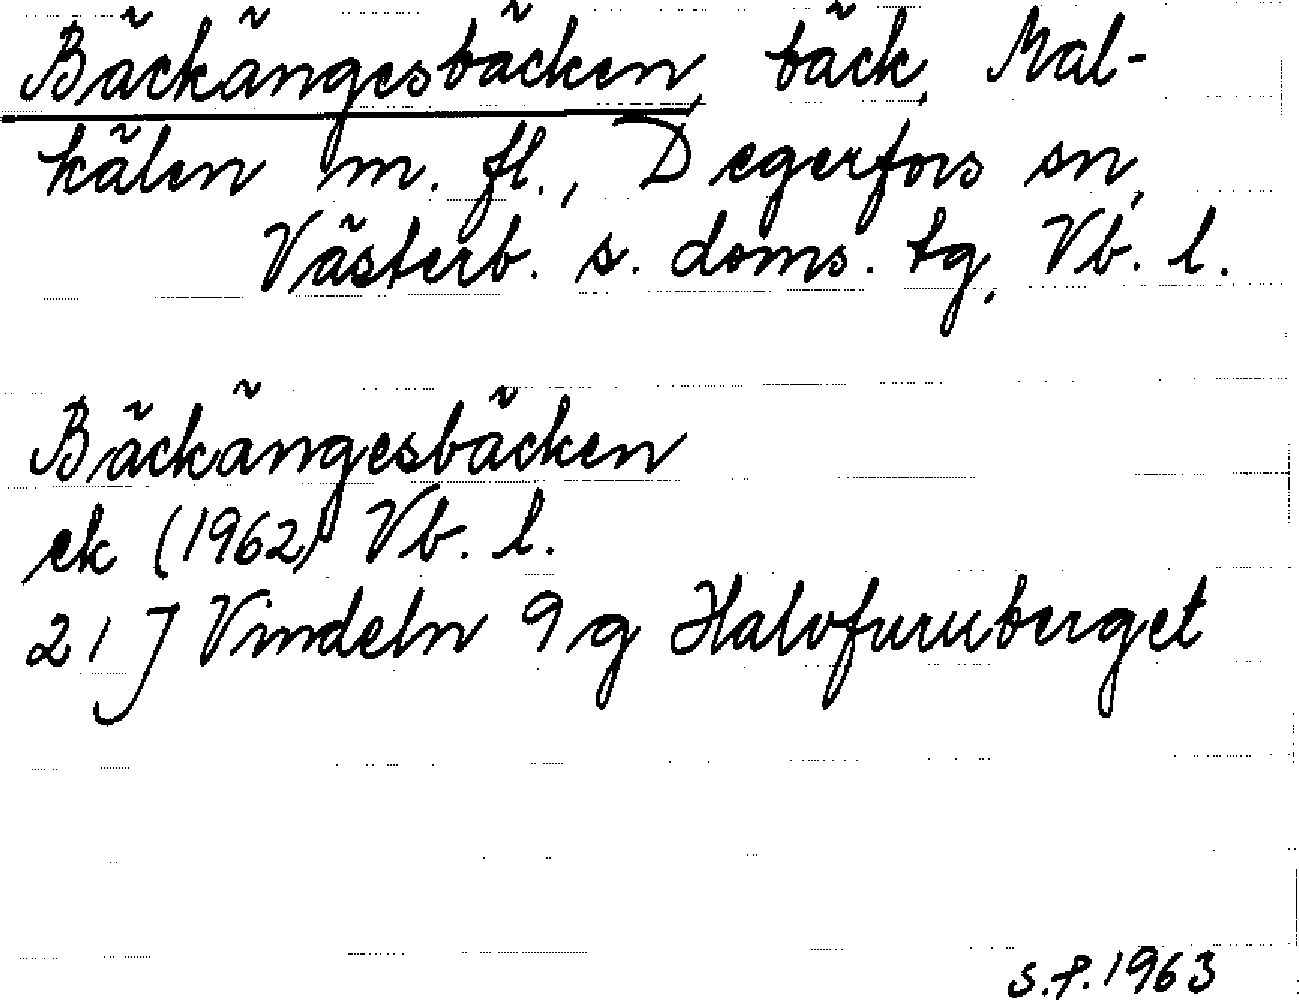 Bäckängesbäcken, bäck, Mal-
kälen m. fl., Degerfors sn,
Västerb. s. doms. tg, Vb. l.
Bäckängesbäcken
ek (1962) Vb. l.
21 J Vindeln 9 g Halvfuruberget
S.P. 1963